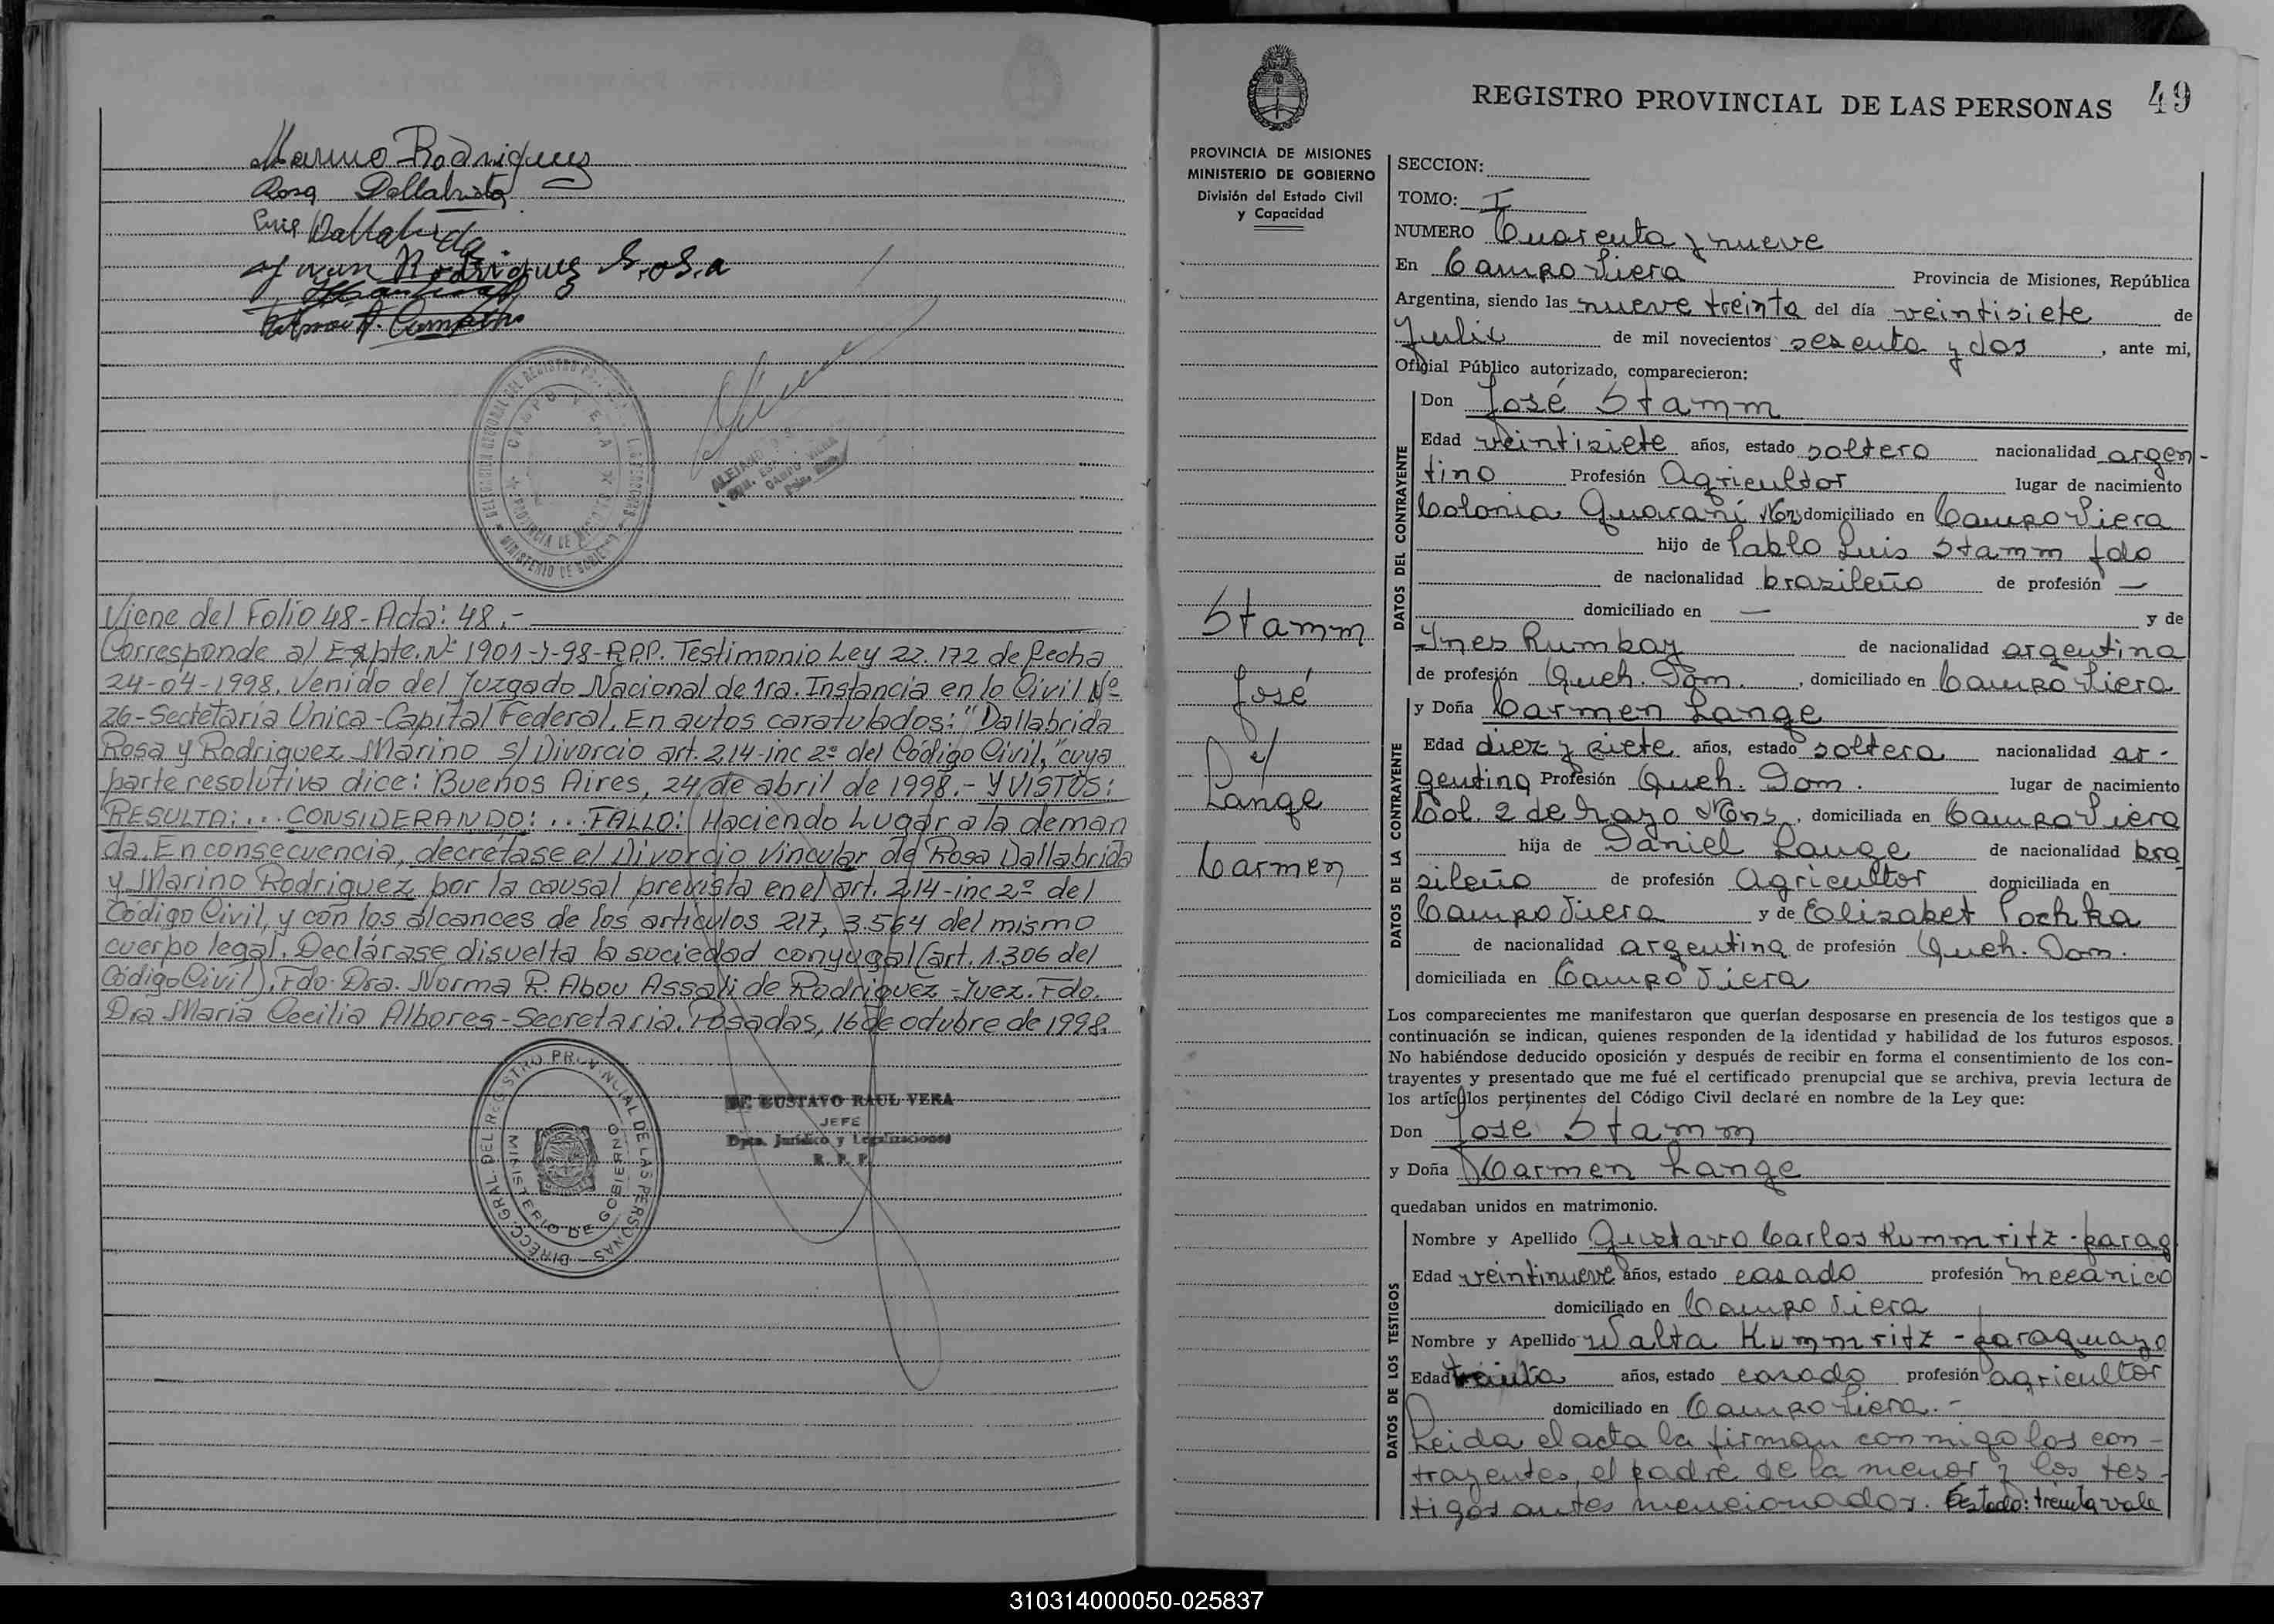 Marino Rodriguez
Rosa Dallabrida
Luis Dallabrida
Juan Rodriguez Sosa
CAMPO VIERA
PROVINCIA DE MISIONES
MINISTERIO DE GOBIERNO
Viene del Folio 48 - Acta: 48.-
Corresponde al Expte. Nº 1901-J-98-RPP. Testimonio Ley 22.172 de fecha
24-04-1998, Venido del Juzgado Nacional de 1ra. Instancia en lo Civil Nº
26-Secretaria Unica-Capital Federal. En autos caratulados: "Dallabrida
Rosa y Rodriguez Marino s/ Divorcio art. 214-inc 2º del Código Civil," cuya
parte resolutiva dice: Buenos Aires, 24 de abril de 1998.- Y VISTOS:
RESULTA:... CONSIDERANDO:... FALLO: Haciendo Lugar a la deman
da. En consecuencia, decrétase el Divorcio Vincular de Rosa Dallabrida
y Marino Rodriguez por la causal prevista en el art. 214-inc 2º del
Código Civil, y con los alcances de los artículos 217, 3.564 del mismo
cuerpo legal. Declárase disuelta la sociedad conyugal (art. 1.306 del
Código Civil). Fdo. Dra. Norma R. Abou Assali de Rodriguez - Juez. Fdo.
Dra Maria Cecilia Albores-Secretaria. Posadas, 16 de octubre de 1998.
DIRECC. GRAL. DEL REGISTRO PROVINCIAL DE LAS PERSONAS
MINISTERIO DE GOBIERNO
Dr. GUSTAVO RAUL VERA
JEFE
Dpto. Jurídico y Legalizaciones
R. P. P.
REGISTRO PROVINCIAL DE LAS PERSONAS 49
PROVINCIA DE MISIONES
MINISTERIO DE GOBIERNO
División del Estado Civil
y Capacidad
Stamm
José
c/
Lange
Carmen
SECCION:
TOMO: I
NUMERO Cuarenta y nueve
En Campo Viera Provincia de Misiones, República
Argentina, siendo las nueve treinta del día veintisiete de
Julio de mil novecientos sesenta y dos, ante mi,
Oficial Público autorizado, comparecieron:
DATOS DEL CONTRAYENTE
Don José Stamm
Edad veintisiete años, estado soltero nacionalidad argen-
tino Profesión Agricultor lugar de nacimiento
Colonia Guaraní Mns domiciliado en Campo Viera
hijo de Pablo Luis Stamm fdo
de nacionalidad brasileño de profesión —
domiciliado en — y de
Ines Rumbay de nacionalidad argentina
de profesión Queh. Dom., domiciliado en Campo Viera
y Doña Carmen Lange
DATOS DE LA CONTRAYENTE
Edad diez y siete años, estado soltera nacionalidad ar-
gentina Profesión Queh. Dom. lugar de nacimiento
Col. 2 de Mayo Mns., domiciliada en Campo Viera
hija de Daniel Lange de nacionalidad bra
sileño de profesión Agricultor domiciliada en
Campo Viera y de Elizabet Pochka
de nacionalidad argentina de profesión Queh. Dom.
domiciliada en Campo Viera
Los comparecientes me manifestaron que querían desposarse en presencia de los testigos que a
continuación se indican, quienes responden de la identidad y habilidad de los futuros esposos.
No habiéndose deducido oposición y después de recibir en forma el consentimiento de los con-
trayentes y presentado que me fué el certificado prenupcial que se archiva, previa lectura de
los artículos pertinentes del Código Civil declaré en nombre de la Ley que:
Don José Stamm
y Doña Carmen Lange
quedaban unidos en matrimonio.
DATOS DE LOS TESTIGOS
Nombre y Apellido Gustavo Carlos Kummritz - parag
Edad veintinueve años, estado casado profesión mecánico
domiciliado en Campo Viera
Nombre y Apellido Walta Kummritz - paraguayo
Edad treinta años, estado casado profesión agricultor
domiciliado en Campo Viera.-
Leida el acta la firman conmigo los con-
trayentes, el padre de la menor y los tes-
tigos antes mencionados. Estado: treinta vale
310314000050-025837